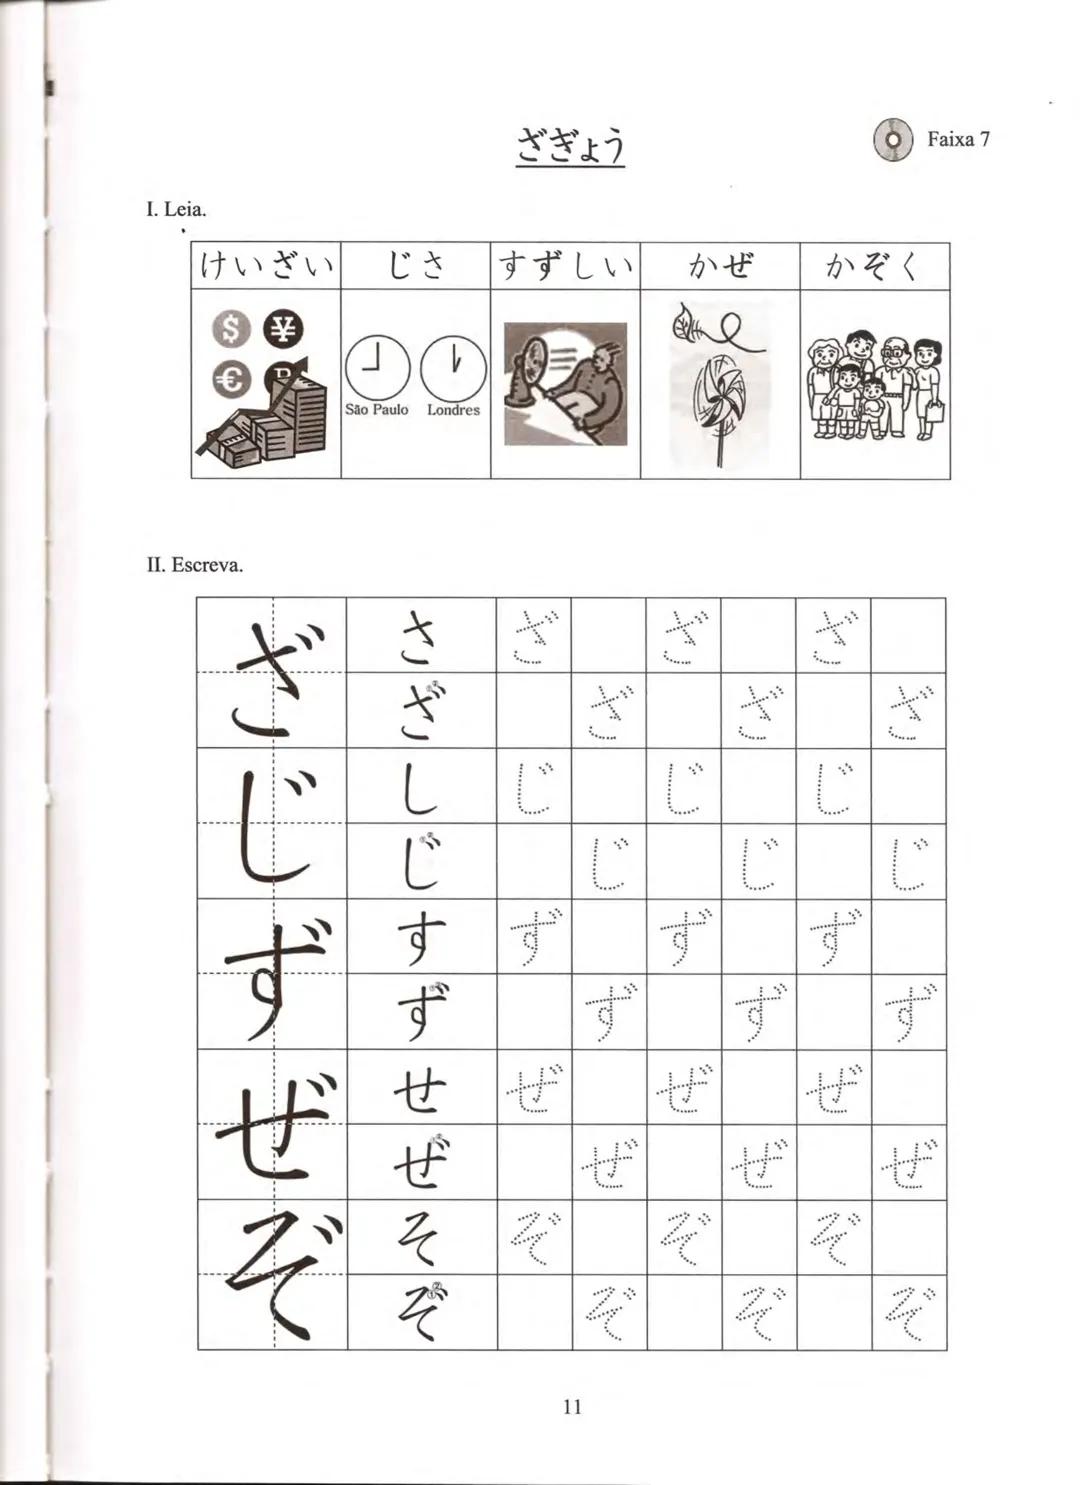 ざぎょう
Faixa 7
I. Leia.
けいざい じさ すずしい かぜ かぞく
$ ¥
€
São Paulo Londres
II. Escreva.
ざ さ ざ ざ ざ
ざ ざ ざ ざ
じ し じ じ じ
じ じ じ じ
ず す ず ず ず
ず ず ず ず
ぜ せ ぜ ぜ ぜ
ぜ ぜ ぜ ぜ
ぞ そ ぞ ぞ ぞ
ぞ ぞ ぞ ぞ
11